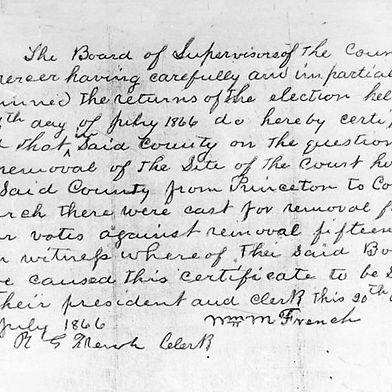 The Board of Supervisors of the Coun
ercer having carefully and impartia
mined the returns of the election hel
th day of July 1866 do hereby certi
d that in Said County on the question
removal of the Site of the Court ho
Said County from Princeton to Co
rch there were cast for removal f
r votes against removal fifteen
n witness where of the Said Bo
ve caused this certificate to be S
their president and clerk this 20th
July 1866 Wm M French
R G French Clerk